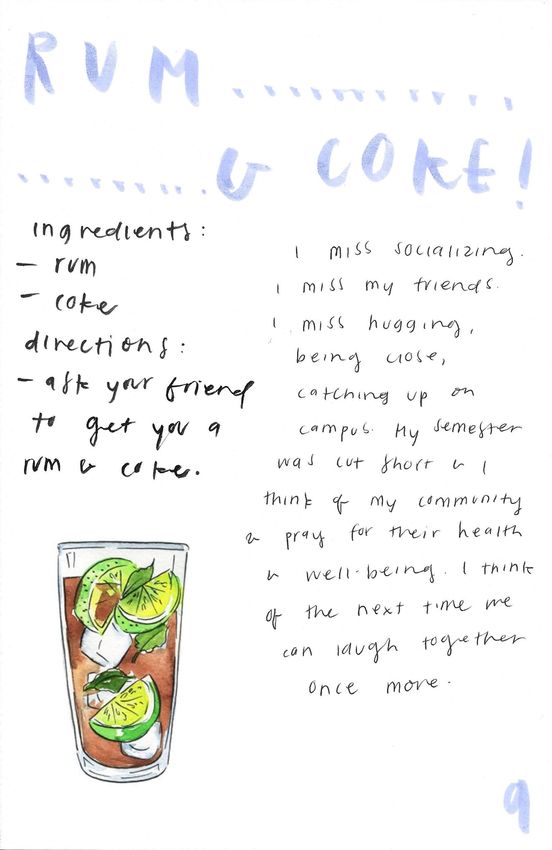 RUM..............
..........& COKE!
ingredients:
- rum
- coke
directions:
- ask your friend
to get you a
rum & coke.
I miss socializing.
I miss my friends.
I miss hugging,
being close,
catching up on
campus. My semester
was cut short & I
think of my community
& pray for their health
& well-being. I think
of the next time we
can laugh together
once more.
9